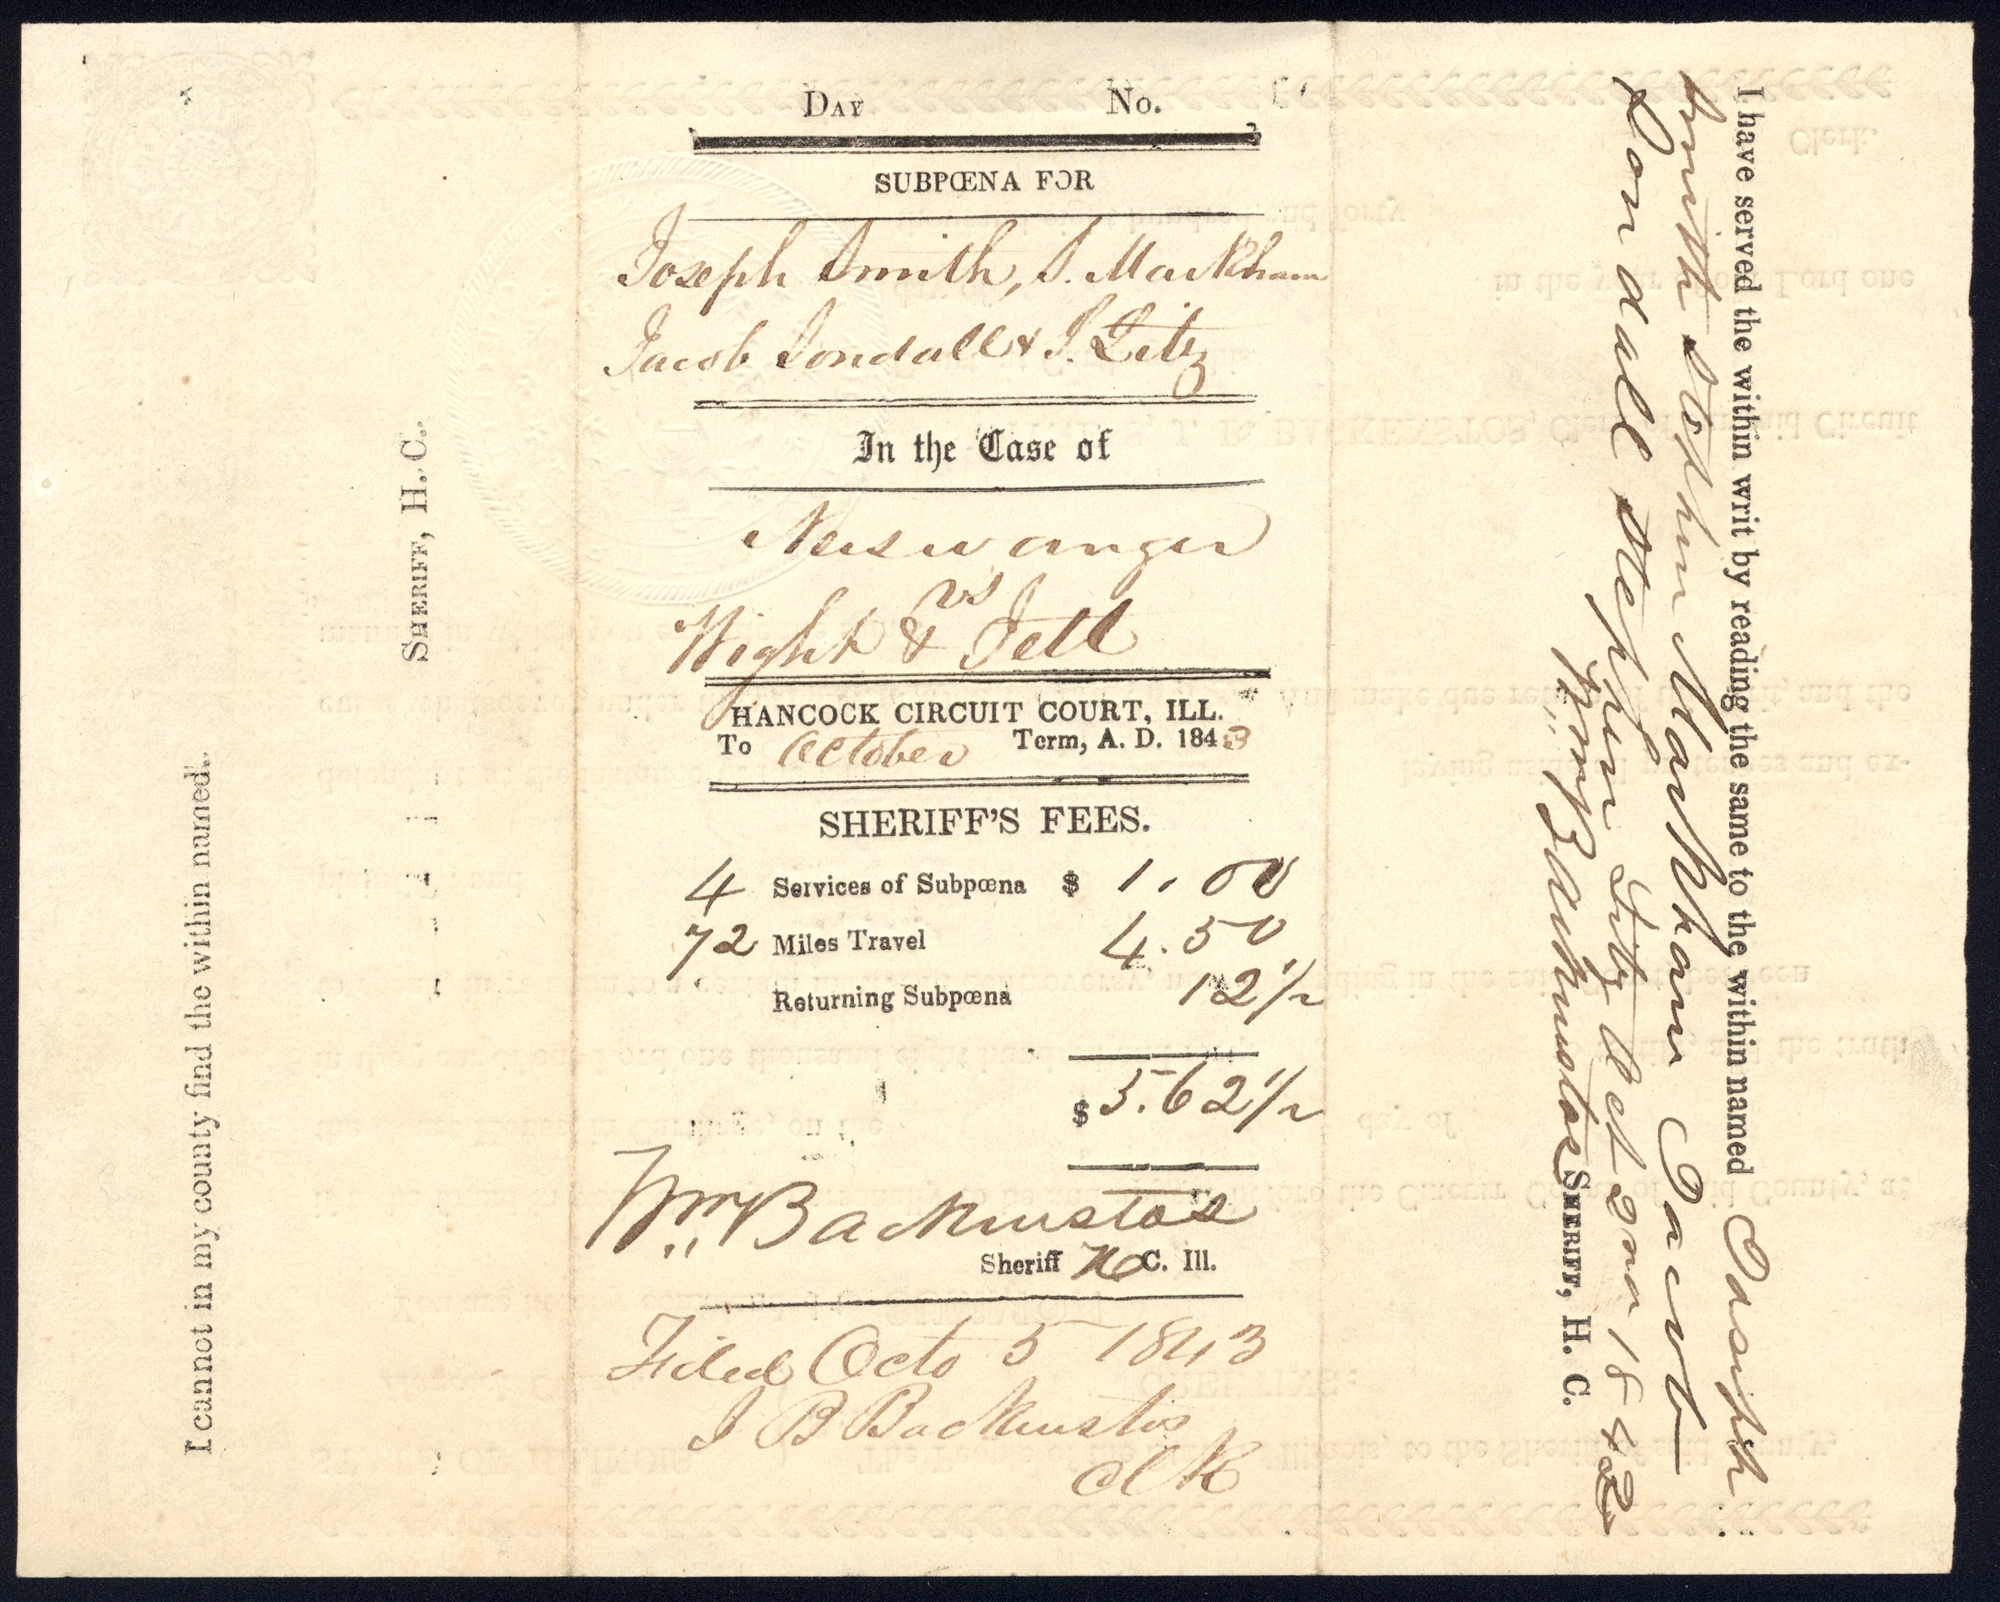 I cannot in my county find the within named.
SHERIFF, H. C.
DAY No.
SUBPŒNA FOR
Joseph Smith, S. Markham
Jacob Sondall & S. Litz
In the Case of
Neiswanger
vs
Wight & Tell
HANCOCK CIRCUIT COURT, ILL.
To October Term, A. D. 1843
SHERIFF'S FEES.
4 Services of Subpœna $ 1.00
72 Miles Travel 4.50
Returning Subpœna 12 1/2
$ 5.62 1/2
Wm Backenstos
Sheriff H C. Ill.
Filed Octo 5 1843
J B Backenstos
Clk
I have served the within writ by reading the same to the within named Joseph
Smith Stephen Markham Jacob
Sondall Stephen Litz Oct 2nd 1842
Wm Backenstos SHERIFF, H. C.